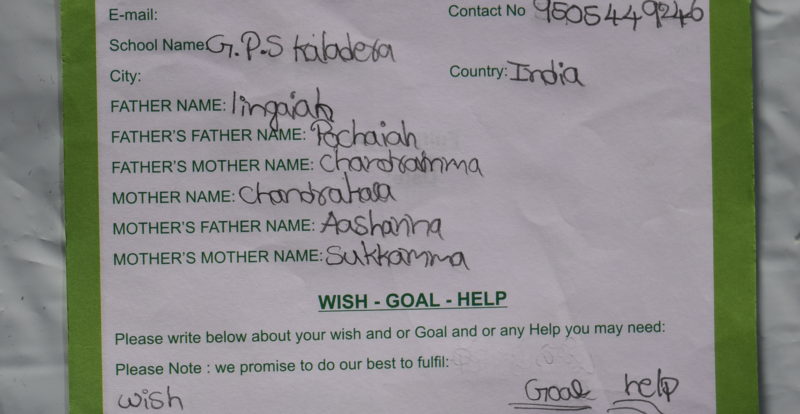 E-mail: Contact No 9505449246
School Name: G.P.S Kailadera
City: Country: India
FATHER NAME: lingaiah
FATHER'S FATHER NAME: Pochaiah
FATHER'S MOTHER NAME: Chandramma
MOTHER NAME: Chandrakala
MOTHER'S FATHER NAME: Aashanna
MOTHER'S MOTHER NAME: Sukkamma
WISH - GOAL - HELP
Please write below about your wish and or Goal and or any Help you may need:
Please Note : we promise to do our best to fulfil:
wish Goal help